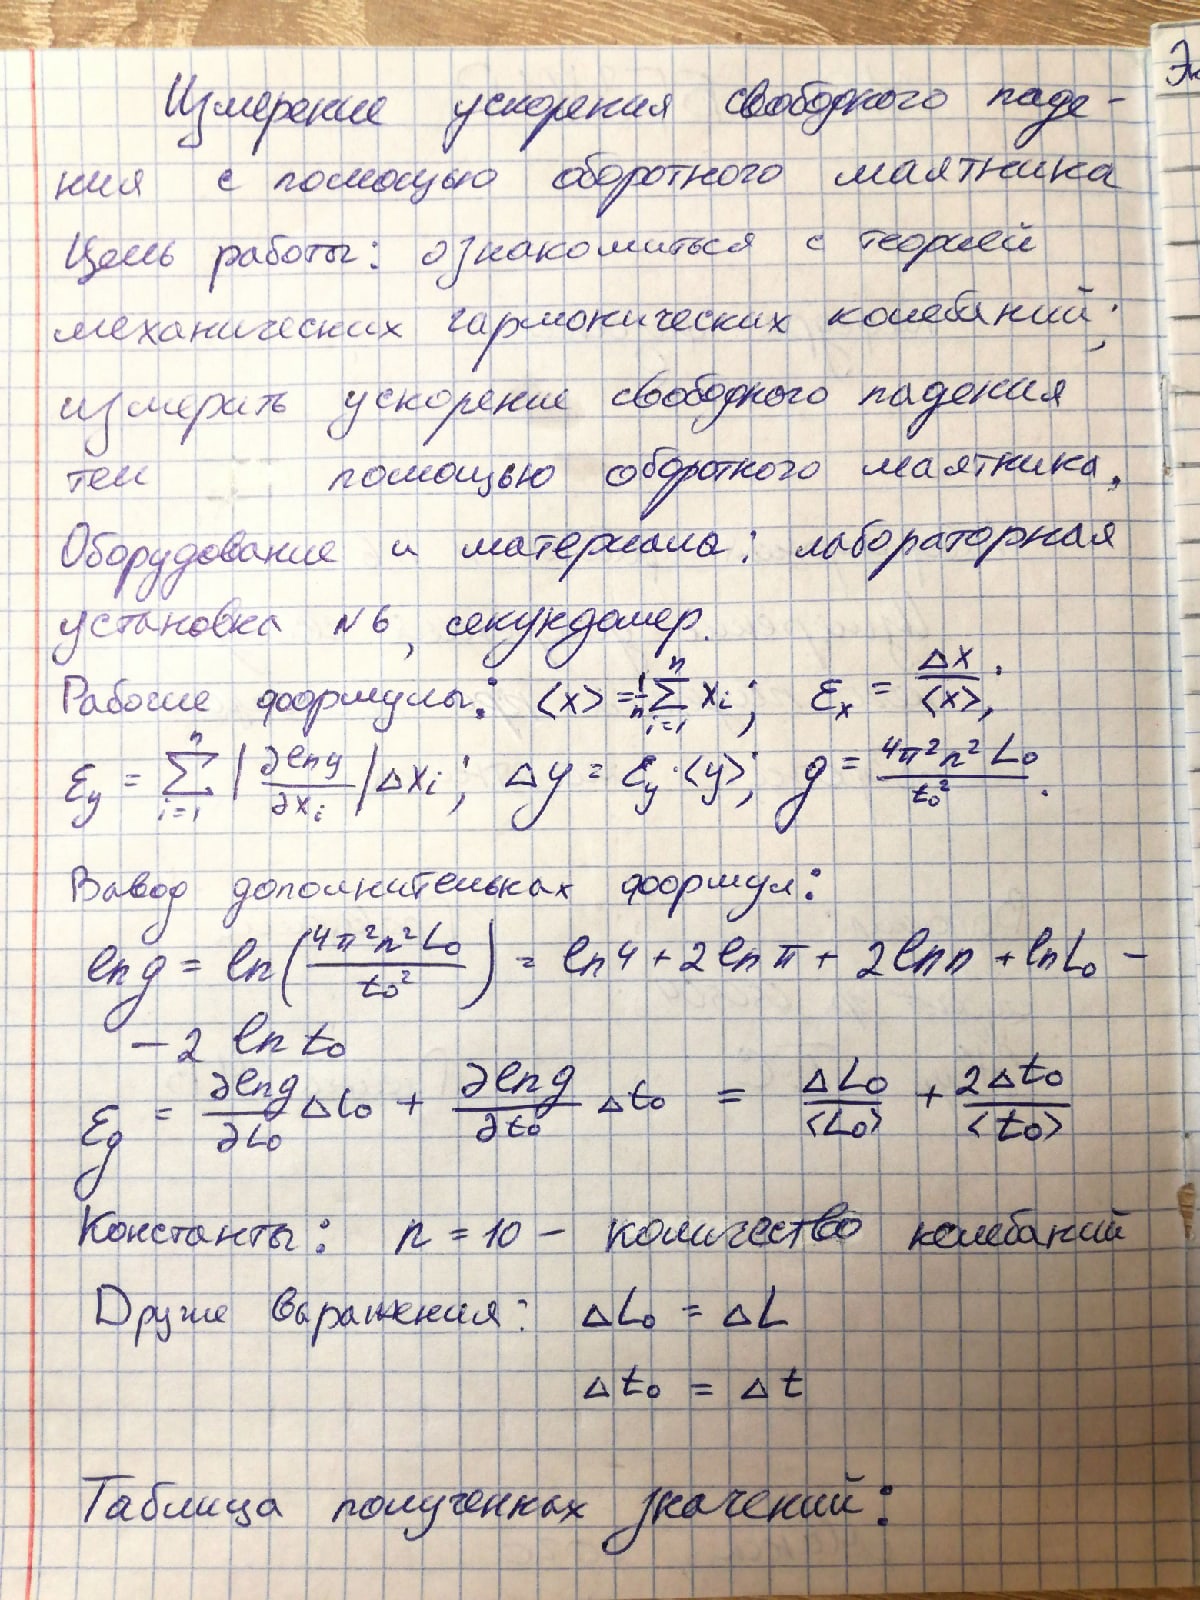 Измерение ускорения свободного паде-
ния с помощью оборотного маятника
Цель работы: ознакомиться с теорией
механических гармонических колебаний;
измерить ускорение свободного падения
помощью оборотного маятника.
Оборудование и материалы: лабораторная
установка №6, секундомер.
Рабочие формулы: ⟨x⟩ = 1/n ∑_{i=1}^{n} x_i; ε_x = Δx/⟨x⟩;
ε_y = ∑_{i=1}^{n} |∂ln y/∂x_i| Δx_i; Δy = ε_y·⟨y⟩; g = 4π²n²L₀/t₀².
Вывод дополнительных формул:
ln g = ln(4π²n²L₀/t₀²) = ln4 + 2lnπ + 2ln n + ln L₀ –
– 2 ln t₀
ε_g = ∂ln g/∂L₀ ΔL₀ + ∂ln g/∂t₀ Δt₀ = ΔL₀/⟨L₀⟩ + 2Δt₀/⟨t₀⟩
Константы: n = 10 – количество колебаний
Другие выражения: ΔL₀ = ΔL
Δt₀ = Δt
Таблица полученных значений: